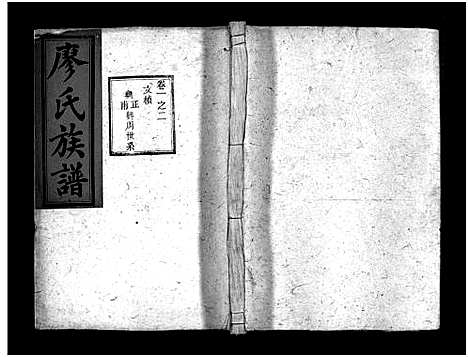 廖氏族譜
卷一之二
文楨
正
周世系